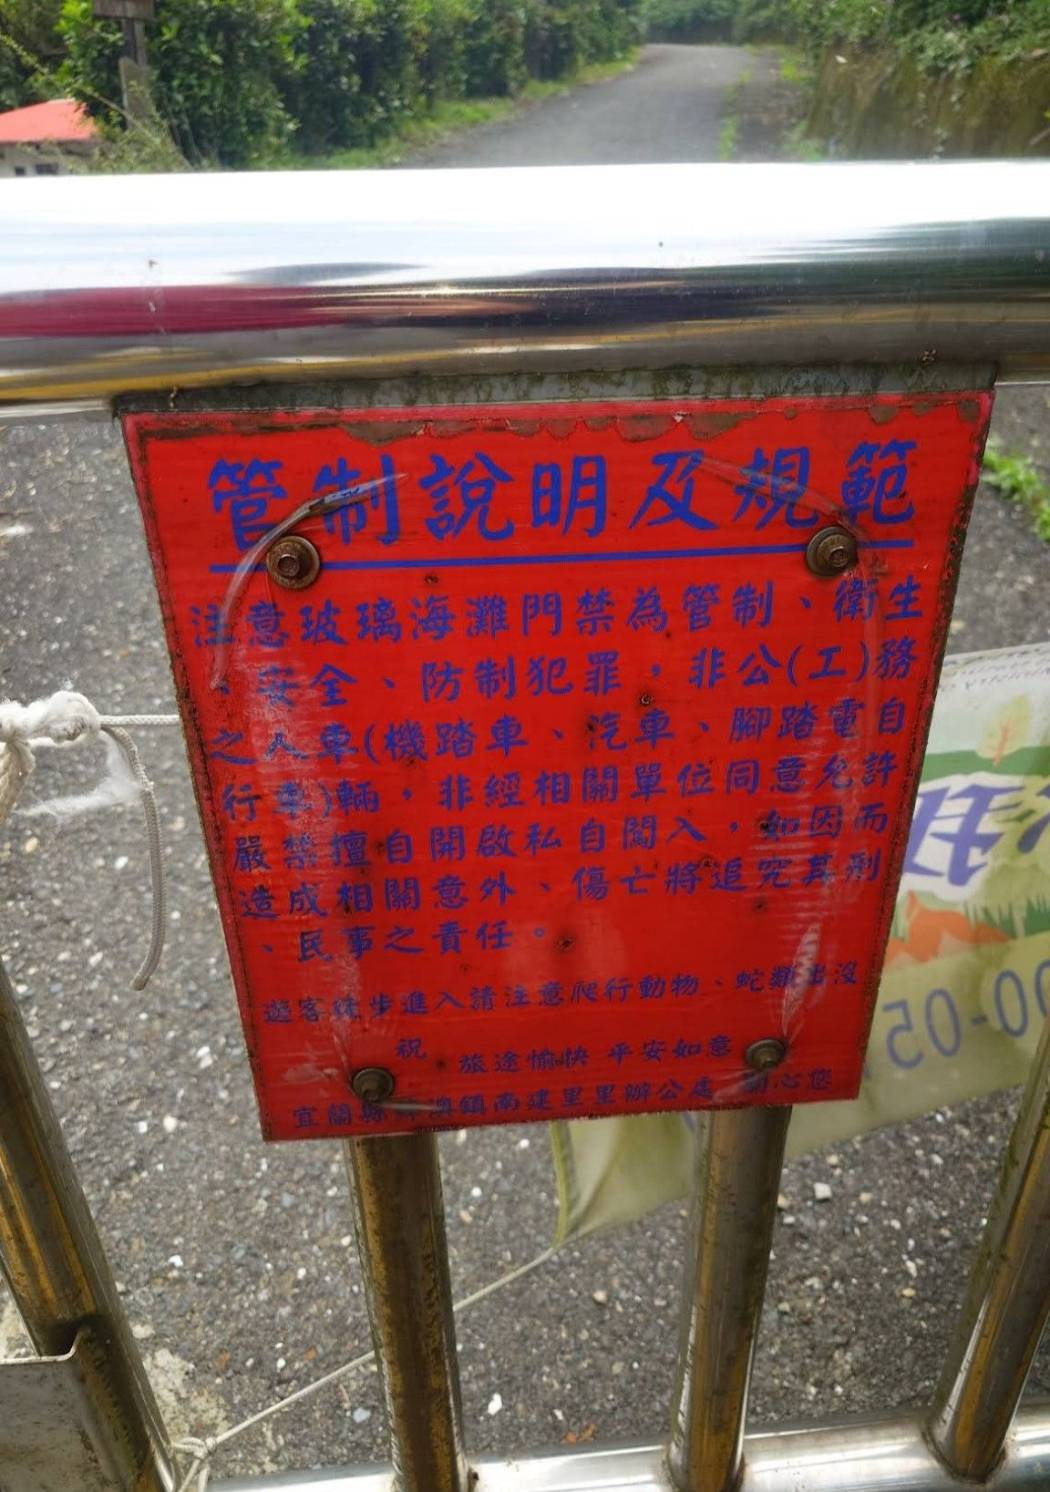 管制說明及規範
注意玻璃海灘門禁為管制、衛生
、安全、防制犯罪，非公(工)務
之人車(機踏車、汽車、腳踏電自
行車)輛，非經相關單位同意允許
嚴禁擅自開啟私自闖入，如因而
造成相關意外、傷亡將追究其刑
、民事之責任。
遊客徒步進入請注意爬行動物、蛇類出沒
祝 旅途愉快 平安如意
宜蘭縣蘇澳鎮南建里里辦公處 關心您
00-05